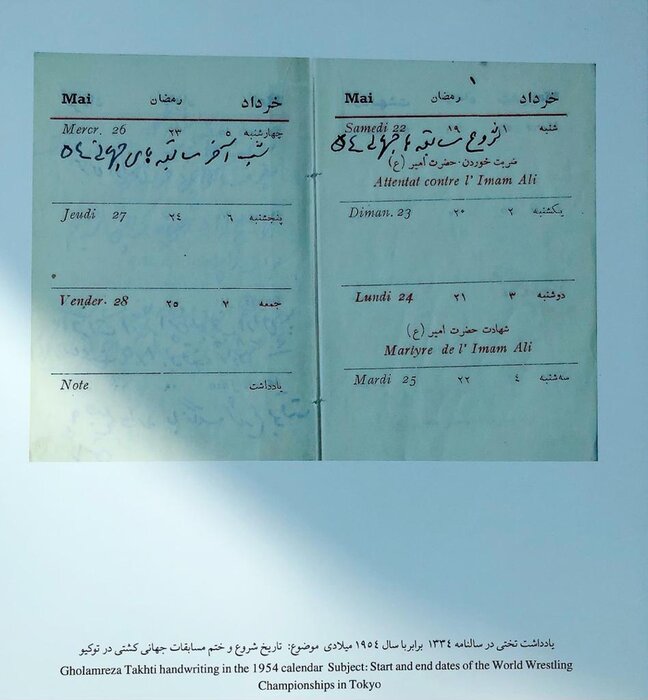 ١
Mai رمضان خرداد
Samedi 22 ١٩ ١ شنبه
شروع مسابقه های جهانی ٥٤
ضربت خوردن حضرت امیر (ع)
Attentat contre l' Imam Ali
Diman. 23 ٢٠ ٢ یکشنبه
Lundi 24 ٢١ ٣ دوشنبه
شهادت حضرت امیر (ع)
Martyre de l' Imam Ali
Mardi 25 ٢٢ ٤ سه‌شنبه
Mai رمضان خرداد
Mercr. 26 ٢٣ ٥ چهارشنبه
شب آخر مسابقه های جهانی ٥٤
Jeudi 27 ٢٤ ٦ پنجشنبه
Vender. 28 ٢٥ ٧ جمعه
Note یادداشت
یادداشت تختی در سالنامه ١٣٣٤ برابر با سال ١٩٥٤ میلادی موضوع: تاریخ شروع و ختم مسابقات جهانی کشتی در توکیو
Gholamreza Takhti handwriting in the 1954 calendar Subject: Start and end dates of the World Wrestling
Championships in Tokyo